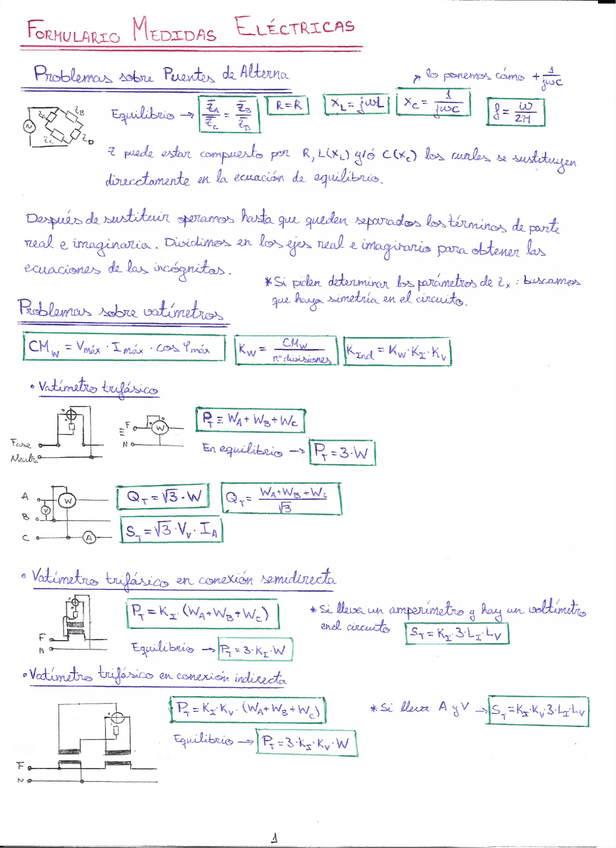 FORMULARIO MEDIDAS ELÉCTRICAS
Problemas sobre Puentes de Alterna
lo ponemos como + 1/jωC
Z̄A Z̄B Z̄C Z̄D
Equilibrio → Z̄A/Z̄C = Z̄B/Z̄D R=R XL=jωL XC=1/jωC f=ω/2π
Z puede estar compuesto por R, L(XL) y/ó C(Xc) los cuales se sustituyen
directamente en la ecuación de equilibrio.
Después de sustituir operamos hasta que queden separados los términos de parte
real e imaginaria. Dividimos en los ejes real e imaginario para obtener las
ecuaciones de las incógnitas.
*Si piden determinar los parámetros de Zx: buscamos
que haya simetría en el circuito.
Problemas sobre vatímetros
CMW = Vmáx · Imáx · cos φmáx KW = CMW/nº divisiones KInd = KW·KI·KV
• Vatímetro trifásico
Fase
Neutro
F
N
W
PT ≡ WA + WB + WC
En equilibrio → PT = 3·W
A
B
C
W
V
A
QT = √3 · W QT = WA+WB+WC/√3
ST = √3 · VV · IA
• Vatímetro trifásico en conexión semidirecta
F
N
PT = KI · (WA + WB + WC)
Equilibrio → PT = 3·KI·W
*Si lleva un amperímetro y hay un voltímetro
en el circuito ST = KI·3·LI·LV
• Vatímetro trifásico en conexión indirecta
F
N
PT = KI·KV·(WA + WB + WC)
Equilibrio → PT = 3·KI·KV·W
*Si lleva A y V → ST = KI·KV·3·LI·LV
1